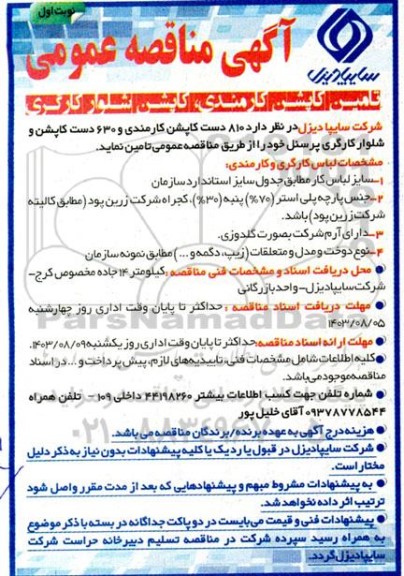 نوبت اول
آگهی مناقصه عمومی
سایپادیزل
تامین کاپشن کارمندی، کاپشن شلوار کارگری
شرکت سایپا دیزل در نظر دارد ۸۱۰ دست کاپشن کارمندی و ۶۳۰ دست کاپشن و
شلوار کارگری پرسنل خود را از طریق مناقصه عمومی تامین نماید.
مشخصات لباس کارگری و کارمندی:
۱-سایز لباس کار مطابق جدول سایز استاندارد سازمان
۲-جنس پارچه پلی استر (۷۰%) پنبه (۳۰%)، کجراه شرکت زرین پود (مطابق کالیته
شرکت زرین پود) باشد.
۳-دارای آرم شرکت بصورت گلدوزی.
۴-نوع دوخت و مدل و متعلقات (زیپ، دگمه و ...) مطابق نمونه سازمان
● محل دریافت اسناد و مشخصات فنی مناقصه : کیلومتر ۱۴ جاده مخصوص کرج-
شرکت سایپادیزل-واحد بازرگانی
● مهلت دریافت اسناد مناقصه : حداکثر تا پایان وقت اداری روز چهارشنبه
۱۴۰۳/۰۸/۰۵
● مهلت ارائه اسناد مناقصه: حداکثر تا پایان وقت اداری روز یکشنبه ۱۴۰۳/۰۸/۰۹.
● کلیه اطلاعات شامل مشخصات فنی، تاییدیه های لازم، پیش پرداخت و ... در اسناد
مناقصه موجود می باشد.
● شماره تلفن جهت کسب اطلاعات بیشتر ۴۴۱۹۸۲۶۰ داخلی ۱۰۹ - تلفن همراه
۰۹۳۷۸۷۷۸۵۴۴ آقای خلیل پور
● هزینه درج آگهی به عهده برنده/برندگان مناقصه می باشد.
● شرکت سایپادیزل در قبول یا رد یک یا کلیه پیشنهادات بدون نیاز به ذکر دلیل
مختار است.
● به پیشنهادات مشروط مبهم و پیشنهادهایی که بعد از مدت مقرر واصل شود
ترتیب اثر داده نخواهد شد.
● پیشنهادات فنی و قیمت می بایست در دو پاکت جداگانه در بسته با ذکر موضوع
به همراه رسید سپرده شرکت در مناقصه تسلیم دبیرخانه حراست شرکت
سایپادیزل گردد.
ParsNamadData